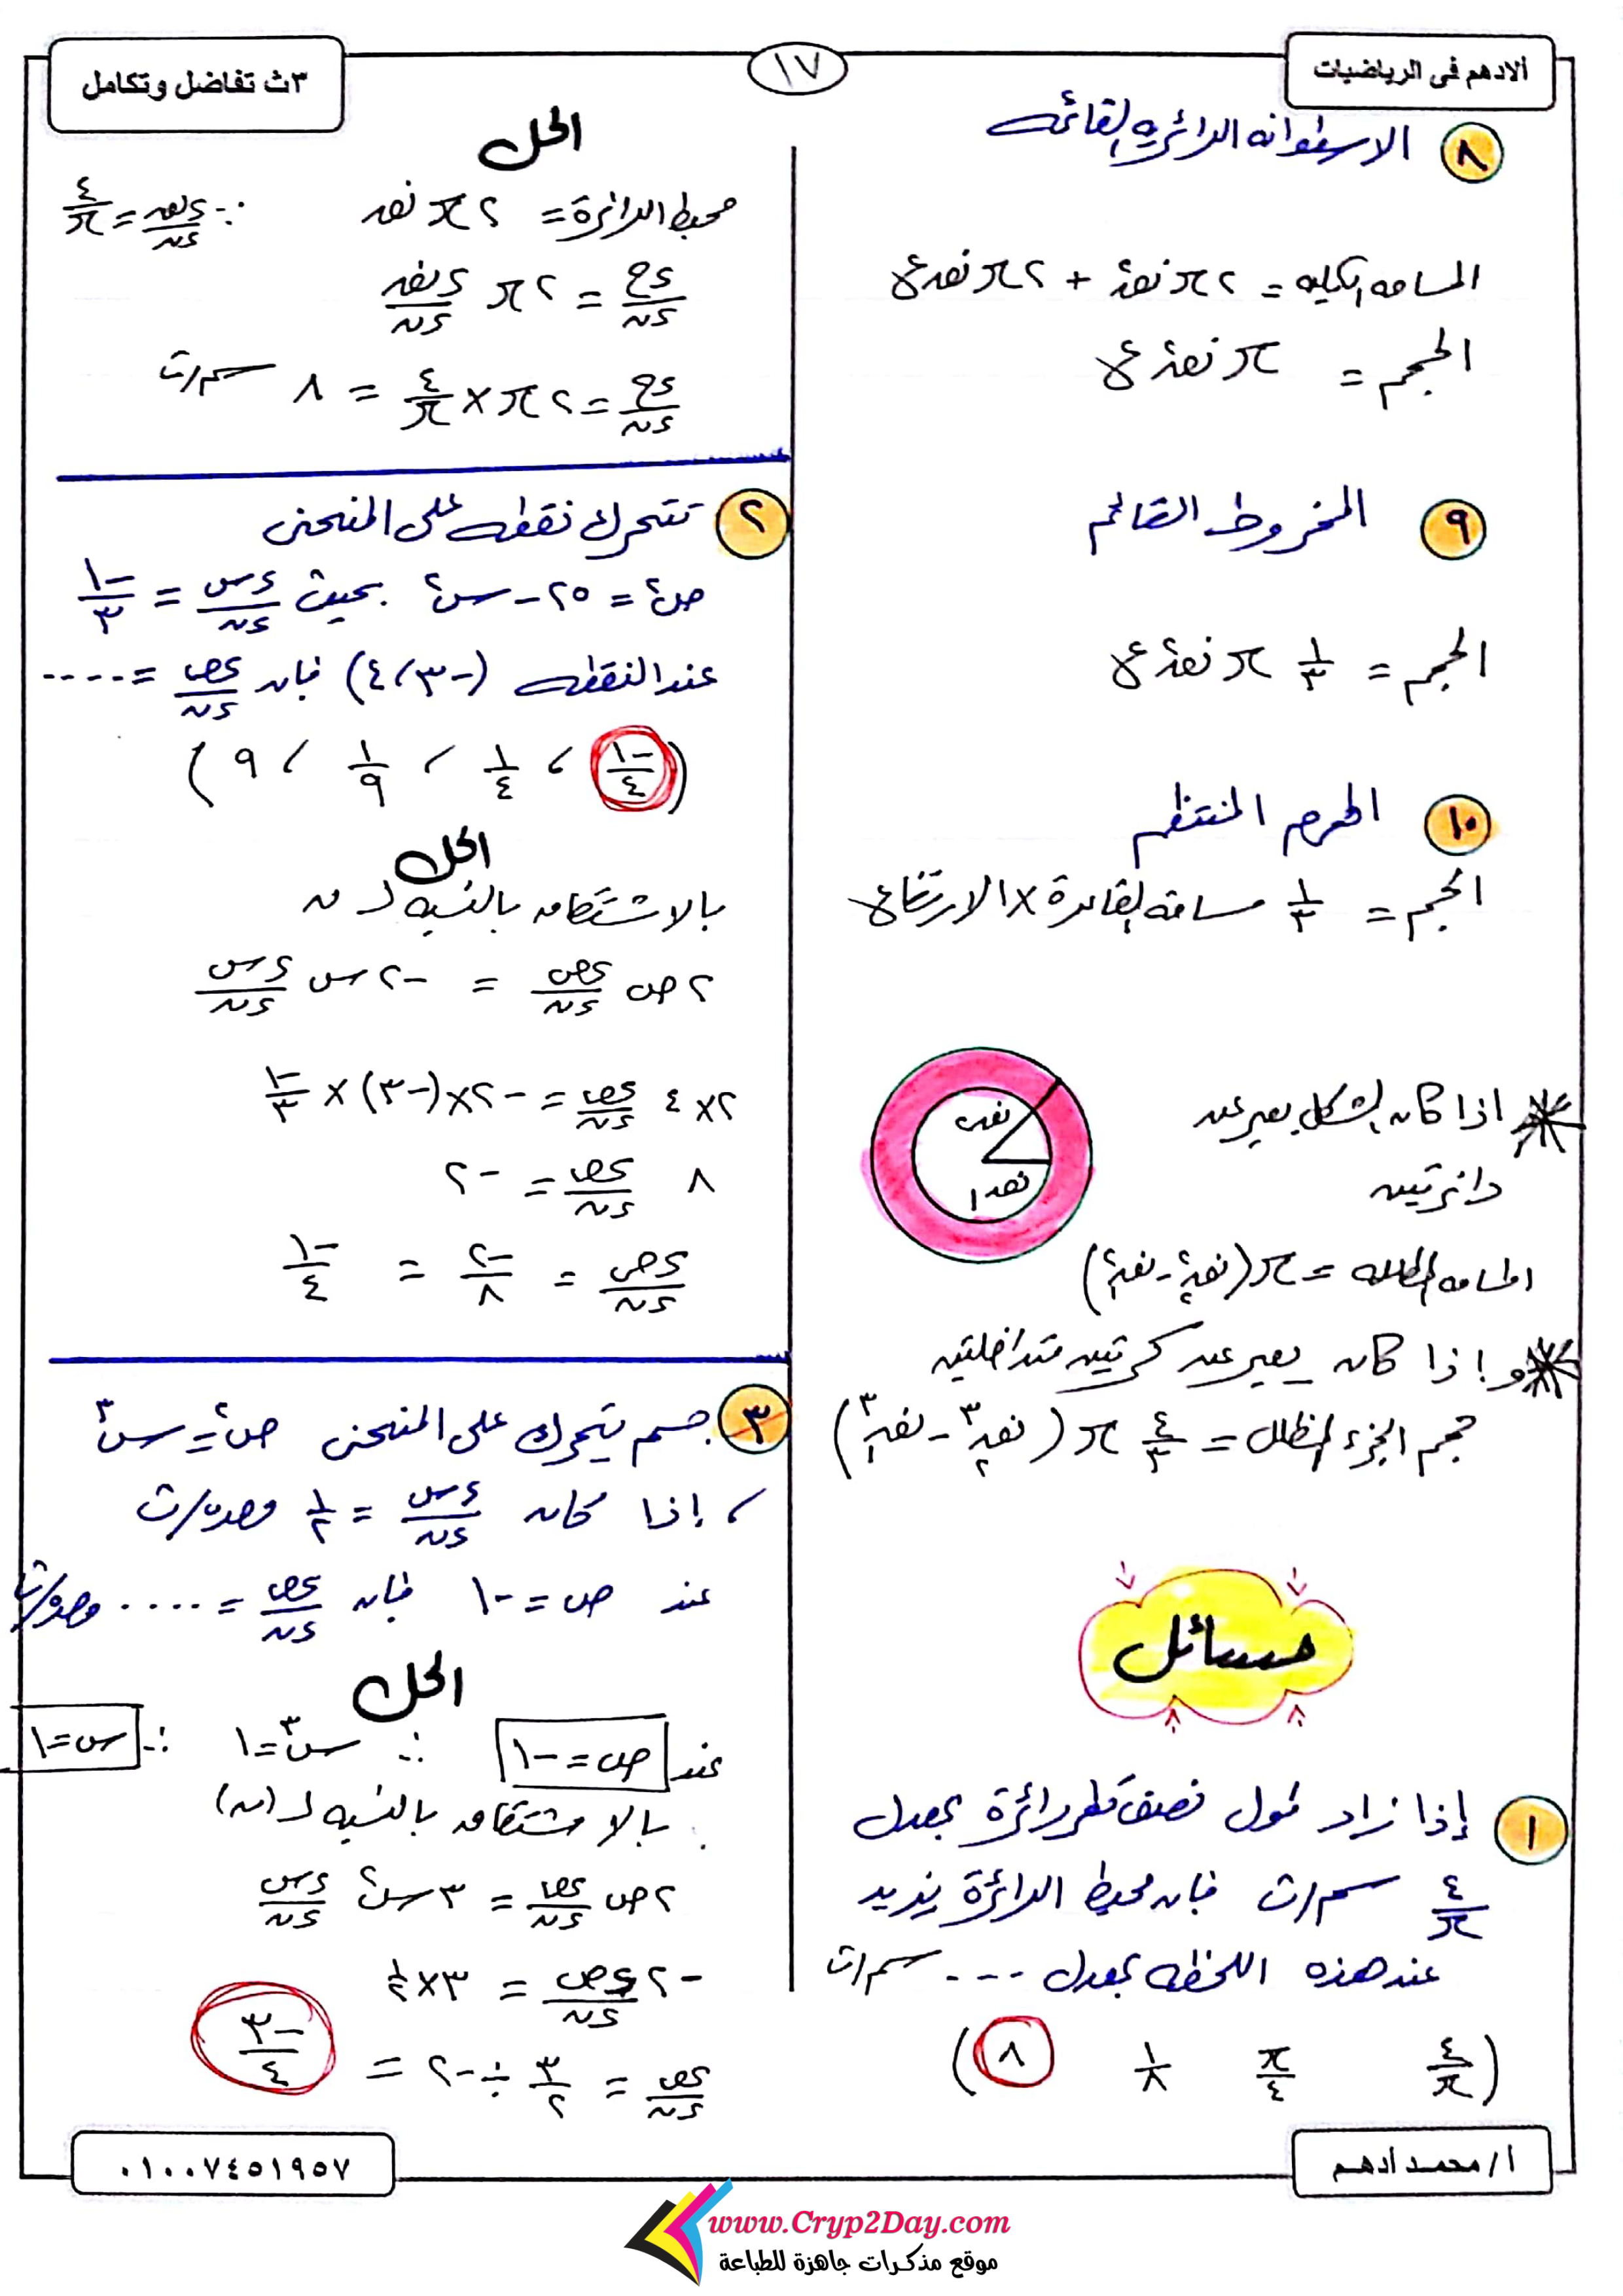 ألادهم فى الرياضيات
١٧
٣ث تفاضل وتكامل
٨ الاسطوانه الدائريه القائمه
المساحه الكليه = ٢ π نق٢ + ٢ π نق ع
الحجم = π نق٢ ع
٩ المخروط القائم
الحجم = ١/٣ π نق٢ ع
١٠ الهرم المنتظم
الحجم = ١/٣ مساحه القاعدة × الارتفاع
اذا كان الشكل يعبر عن
دائرتين
نق٢
نق١
المساحه المظلله = π (نق٢٢ - نق١٢)
و اذا كان يعبر عن كرتين متداخلتين
حجم الجزء المظلل = ٤/٣ π (نق٢٣ - نق١٣)
مسائل
١ إذا زاد طول نصف قطر دائرة بمعدل
٤/π سم/ث فإن محيط الدائرة يزيد
عند هذه اللحظه بمعدل .... سم/ث
(٤/π π/٤ ١/٨ ٨)
الحل
محيط الدائرة = ٢ π نق ∵ ءنق/ءن = ٤/π
ءح/ءن = ٢ π ءنق/ءن
ءح/ءن = ٢ π × ٤/π = ٨ سم/ث
٢ تتحرك نقطه على المنحنى
ص٢ = ٢٥ - س٢ بحيث ءس/ءن = -١/٣
عند النقطه (-٣، ٤) فإن ءص/ءن = ....
(-١/٤ ، ١/٤ ، ١/٩ ، ٩)
الحل
بالاشتقاق بالنسبه لـ ن
٢ص ءص/ءن = -٢س ءس/ءن
٢×٤ ءص/ءن = -٢×(-٣)× -١/٣
٨ ءص/ءن = -٢
ءص/ءن = -٢/٨ = -١/٤
٣ جسم يتحرك على المنحنى ص٢ = س٣
، إذا كان ءس/ءن = ١/٢ وحده/ث
عند ص = -١ فإن ءص/ءن = .... وحده/ث
الحل
عند ص = -١ ∴ س٣ = ١ ∴ س = ١
بالاشتقاق بالنسبه لـ (ن)
٢ص ءص/ءن = ٣س٢ ءس/ءن
-٢ ءص/ءن = ٣ × ١/٢
ءص/ءن = ٣/٢ ÷ -٢ = -٣/٤
أ/ محمد أدهم
٠١٠٠٧٤٥١٩٥٧
www.Cryp2Day.com
موقع مذكرات جاهزة للطباعة